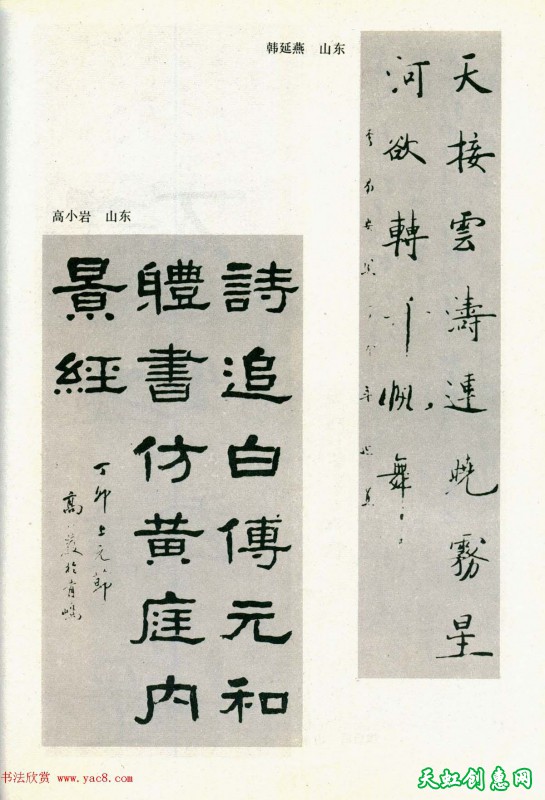 韩延燕 山东
天接雲濤連曉霧星
河欲轉千帆舞
高小岩 山东
詩追白傅元和
體書仿黄庭内
景經
丁卯上元節
書法欣赏 www.yac8.com
天虹创意网